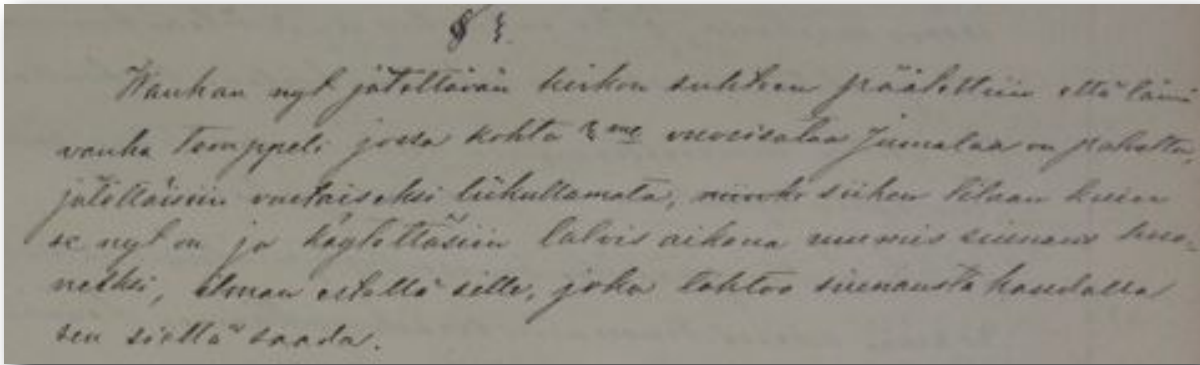 § 3.
Wanhan nyt jätettävän kirkon suhteen päätettiin että tämä
vanha temppeli jossa kohta 2 me vuosisataa Jumalaa on palveltu,
jätettäisiin vastaiseksi liikuttamata, siihen tilaan kuin
se nyt on ja käytettäisiin talvis aikana ruumis siunaus huo-
neeksi, ilman estettä sille, joka tahtoo siunausta haudassa
sen siellä saada.